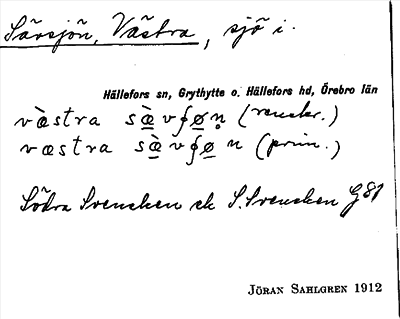 Särsjön, Västra, sjö i.
Hällefors sn, Grythytte o. Hällefors hd, Örebro län
væ̀stra sæ̀vʃøn (renskr.)
væstra sæ̀vʃøn (prim.)
Södra Svensken ek S. Svensken G81
JÖRAN SAHLGREN 1912